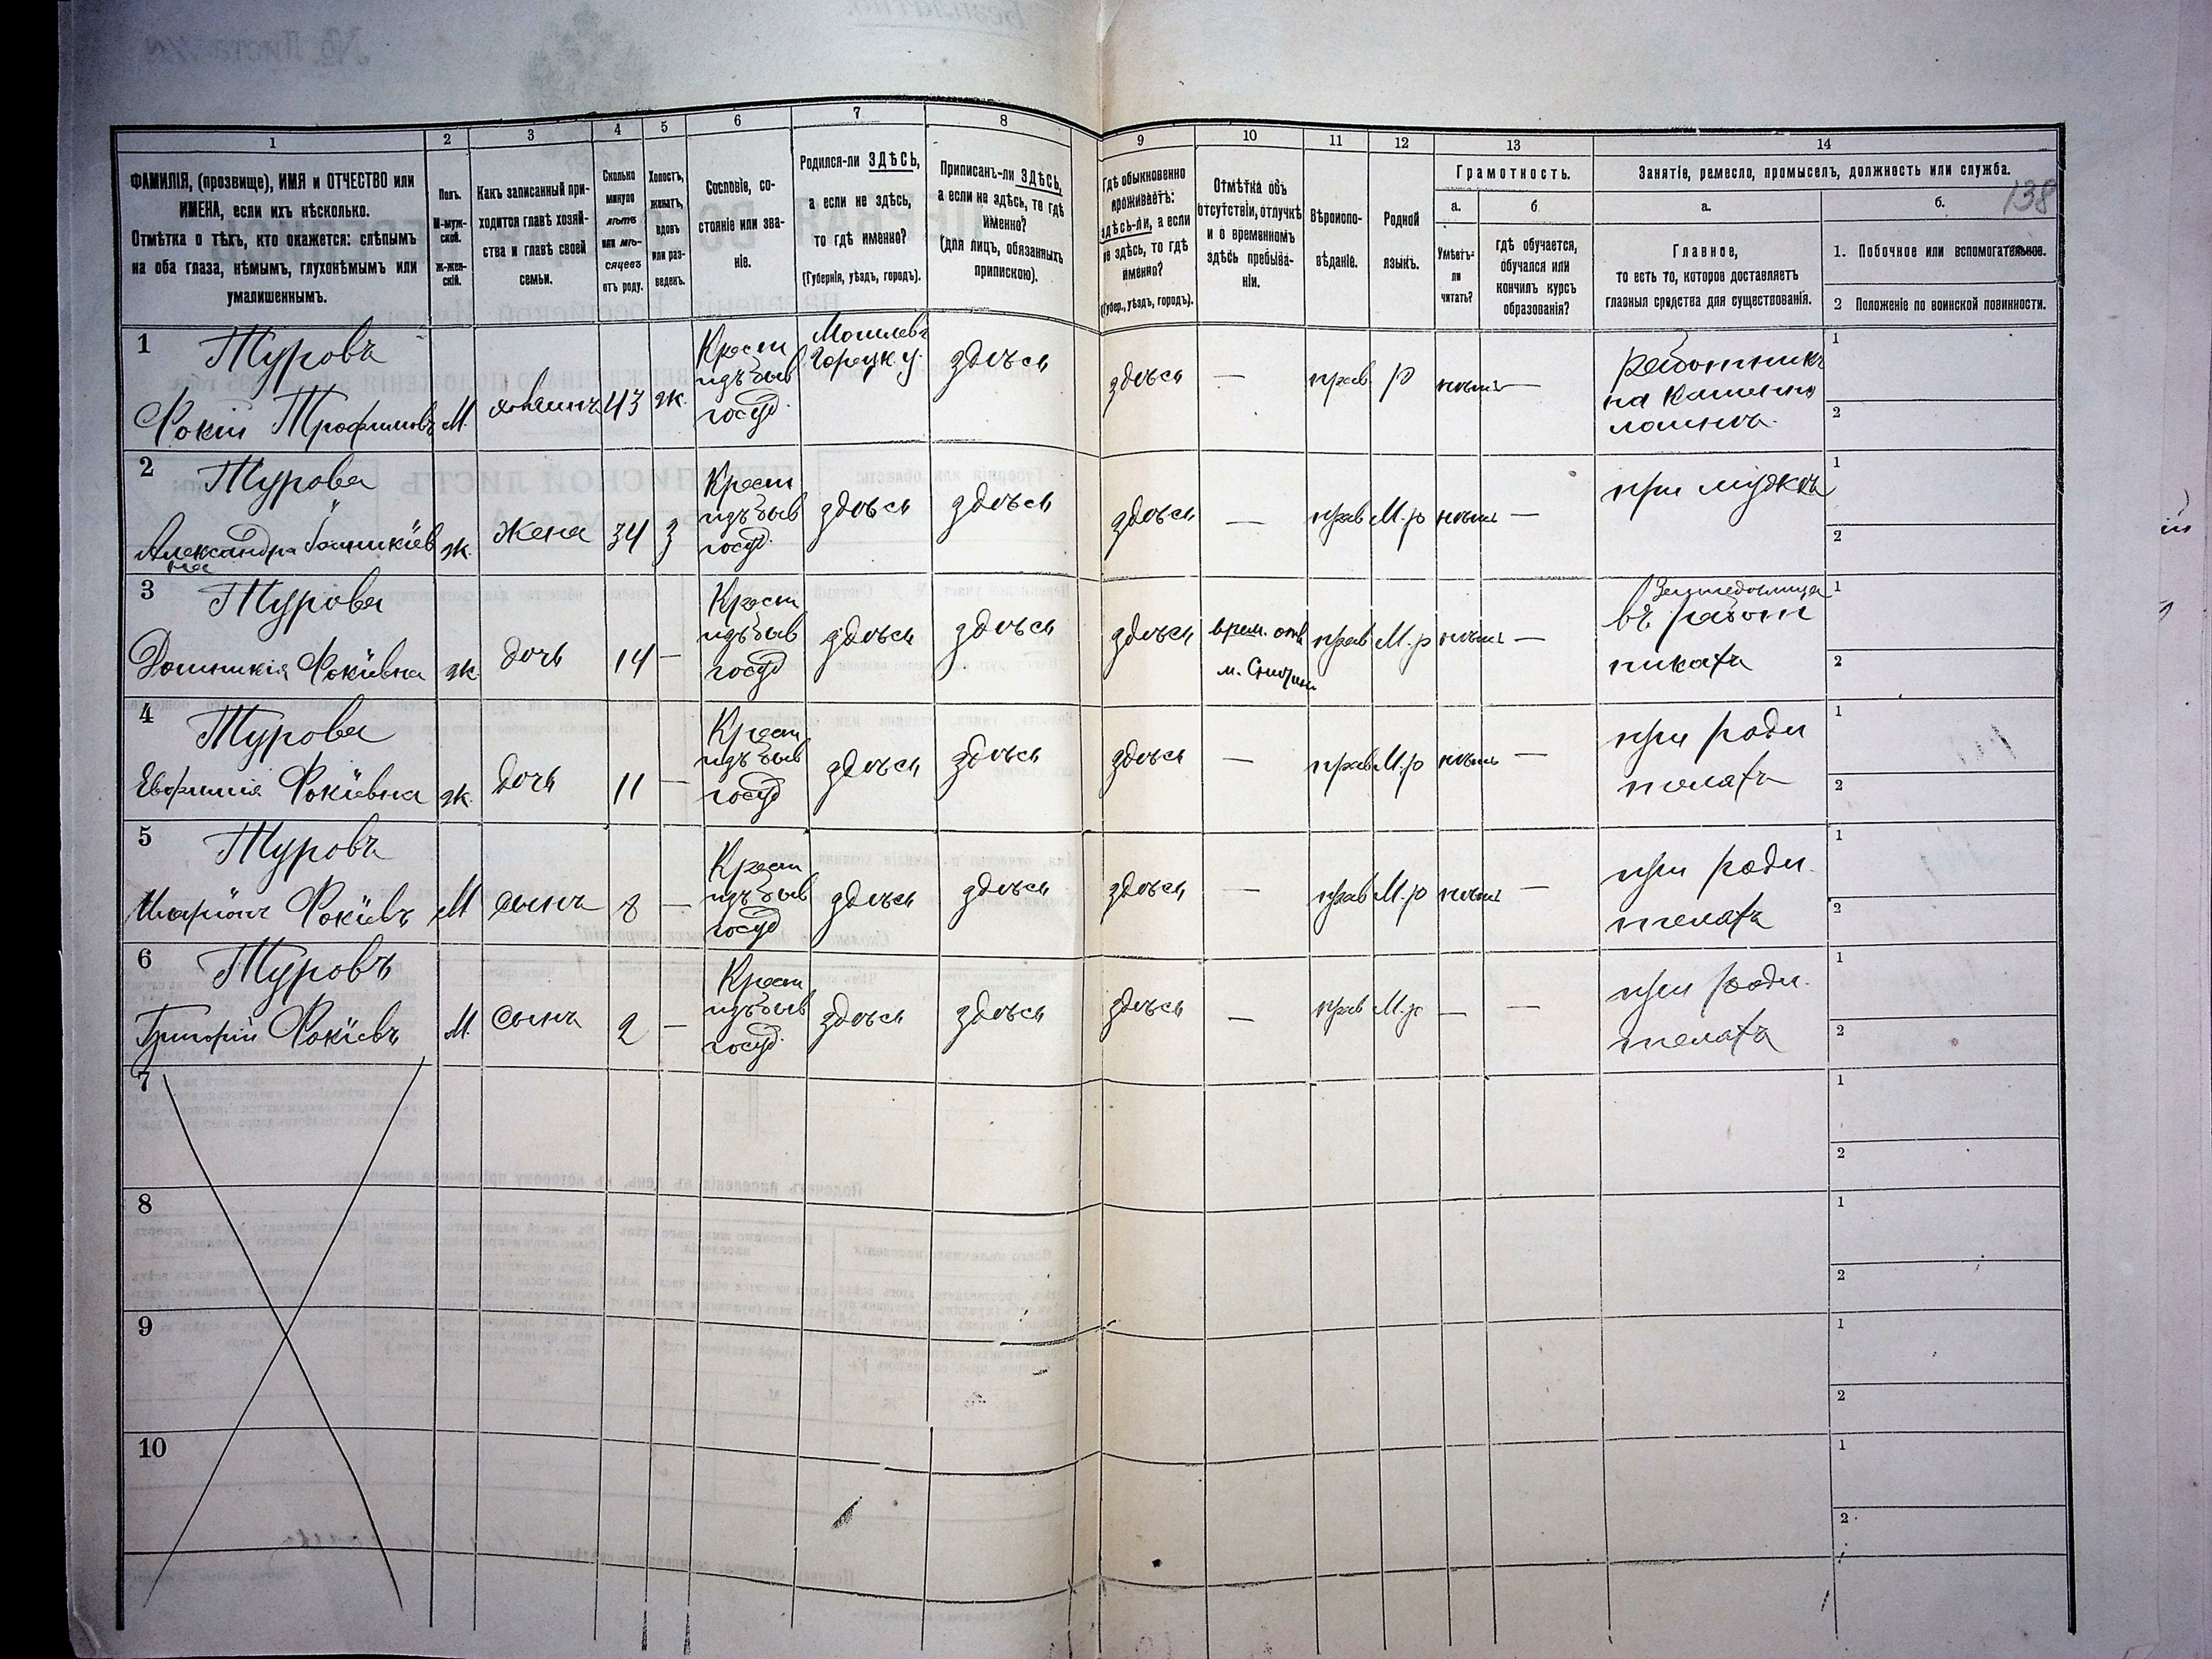 138
1
2
3
4
5
6
7
8
9
10
11
12
13
14
ФАМИЛІЯ, (прозвище), ИМЯ и ОТЧЕСТВО или
ИМЕНА, если ихъ нѣсколько.
Отмѣтка о тѣхъ, кто окажется: слѣпымъ
на оба глаза, нѣмымъ, глухонѣмымъ или
умалишеннымъ.
Полъ.
М-муж-
ской.
ж-жен-
скій.
Какъ записанный при-
ходится главѣ хозяй-
ства и главѣ своей
семьи.
Сколько
минуло
лѣтъ
или мѣ-
сяцевъ
отъ роду.
Холостъ,
женатъ,
вдовъ
или раз-
веденъ.
Сословіе, со-
стояніе или зва-
ніе.
Родился-ли ЗДѢСЬ,
а если не здѣсь,
то гдѣ именно?
(Губернія, уѣздъ, городъ).
Приписанъ-ли ЗДѢСЬ,
а если не здѣсь, то гдѣ
именно?
(для лицъ, обязанныхъ
припискою).
Гдѣ обыкновенно
проживаетъ:
здѣсь-ли, а если
не здѣсь, то гдѣ
именно?
(Губер., уѣздъ, городъ).
Отмѣтка объ
отсутствіи, отлучкѣ
и о временномъ
здѣсь пребыва-
ніи.
Вѣроиспо-
вѣданіе.
Родной
языкъ.
Грамотность.
а.
Умѣетъ-
ли
читать?
б
гдѣ обучается,
обучался или
кончилъ курсъ
образованія?
Занятіе, ремесло, промыселъ, должность или служба.
а.
Главное,
то есть то, которое доставляетъ
главныя средства для существованія.
б.
1. Побочное или вспомогательное.
2 Положеніе по воинской повинности.
1
Туровъ
Фокій Трофимовъ
М.
хозяинъ
43
ж.
Крест
изъ быв
госуд.
Могилевъ
Горецк у.
здѣсь
здѣсь
—
прав.
р
нѣтъ
—
работникъ
на каменно
ломнѣ.
1
2
2
Турова
Александра
на
ж.
жена
34
З
Крест
изъ быв
госуд.
здѣсь
здѣсь
здѣсь
—
прав
М.р
нѣтъ
—
при мужѣ
1
2
3
Турова
Домникія Фокіевна
ж.
дочь
14
—
Крест
изъ быв
госуд
здѣсь
здѣсь
здѣсь
врем. отс
м.
прав
М.р
нѣтъ
—
Земледѣлица
въ работ
никахъ
1
2
4
Турова
Евфимія Фокіевна
ж.
дочь
11
—
Крест
изъ быв
госуд
здѣсь
здѣсь
здѣсь
—
прав
М.р
нѣтъ
—
при роди
телахъ
1
2
5
Туровъ
Иларіонъ Фокіевъ
М
сынъ
8
—
Крест
изъ быв
госуд
здѣсь
здѣсь
здѣсь
—
прав
М.р
нѣтъ
—
при роди.
телахъ
1
2
6
Туровъ
Григорій Фокіевъ
М.
сынъ
2
—
Крест
изъ быв
госуд.
здѣсь
здѣсь
здѣсь
—
прав
М.р
—
—
при роди.
телахъ
1
2
7
1
2
8
1
2
9
1
2
10
1
2